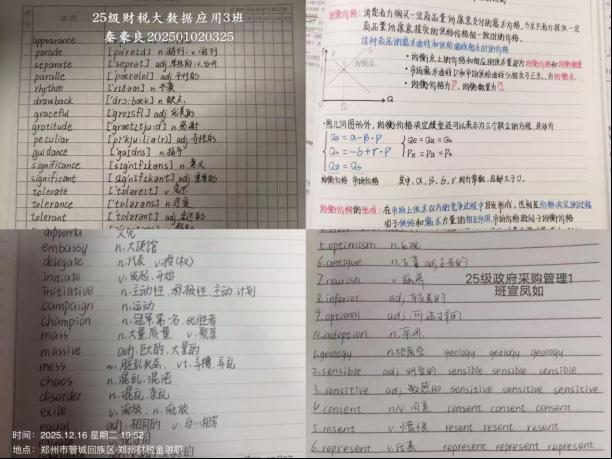 25级财税大数据应用3班
秦豪良202501020325
appearance
parade [pə'reɪd] n.游行 v.游行
separate ['seprət] adj.单独的 v.分开
paralle ['pærəlel] adj.平行的
rhythm ['rɪðəm] n.节奏
drawback ['drɔ:bæk] n.缺点
graceful ['greɪsfl] adj.优美的
gratitude ['grætɪtju:d] n.感谢
peculiar [pɪ'kju:liə(r)] adj.奇怪的
guidance ['gaɪdns] n.指导
significance [sɪg'nɪfɪkəns] n.意义
significant [sɪg'nɪfɪkənt] adj.重要的
tolerate ['tɒləreɪt] v.忍受
tolerance ['tɒlərəns] n.忍受
tolerant ['tɒlərənt] adj.宽容的
均衡价格：消费者为购买一定商品量所愿意支付的需求价格，与生产者为提供一定
商品量所愿意接受的供给价格相一致时的价格.
这种商品的需求曲线和供给曲线相交时的价格
P
Q
均衡点上的价格和相应的供求量即为均衡价格和均衡数量
市场需求曲线D和市场供给曲线S相交于E点，为均衡点.
均衡价格为P，均衡数量为Q
用几何图形外，均衡价格决定模型还可以表示为三个联立的方程，具体为
Qd = α - β · P
Qs = -δ + r · P
Qd = Qs
Qe = Qd = Qs
Pe = Pd = Ps
均衡价格 市场价格 其中，α, β, δ, r 均为常数，且都大于0.
均衡价格的形成：在市场上供求双方的竞争过程中自发形成，也就是价格决定的过程
由于供给和需求力量的相互作用，市场价格趋向于均衡价格
diploma n.文凭
embassy n.大使馆
delegate n.代表 v.授(权)
Initiate v.发起,开始
Initiative n.主动性,积极性,主动,计划
campaign n.运动
champion n.冠军第一名,优胜者
mass n.大量质量 v.聚集
massive adj.巨大的,大量的
mess n.脏乱状态, vt.弄糟,弄乱
chaos n.混乱,混沌
disorder n.混乱,杂乱
exile v.流放, n.流放
equal adj.相同的 v.与…相等
时间：2025.12.16 星期二 19:52
地点：郑州市管城回族区·郑州财税金融职
5.optimism n.乐观
6.antique n.古董 adj.古老的
7.nourish v.滋养
8.inferior adj.较差的
9.optional adj.可选择的
10.adoption n.采用
25级政府采购管理1
班宣凤如
1.geology n.地质学 geology geology geology
2.sensible adj.明智的 sensible sensible sensible
3.sensitive adj.敏感的 sensitive sensitive sensitive
4.consent n/v.同意 consent consent consent
5.resent v.愤恨 resent resent resent
6.represent v.代表 represent represent represent